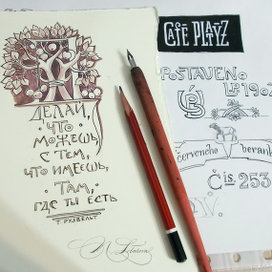 ДЕЛАЙ,
ЧТО
МОЖЕШЬ,
С ТЕМ,
ЧТО ИМЕЕШЬ,
ТАМ,
ГДЕ ТЫ ЕСТЬ
Т. РУЗВЕЛЬТ
CAFÉ PLATÝZ
POSTAVENO
LP 190
červeného beránk
Čís. 253